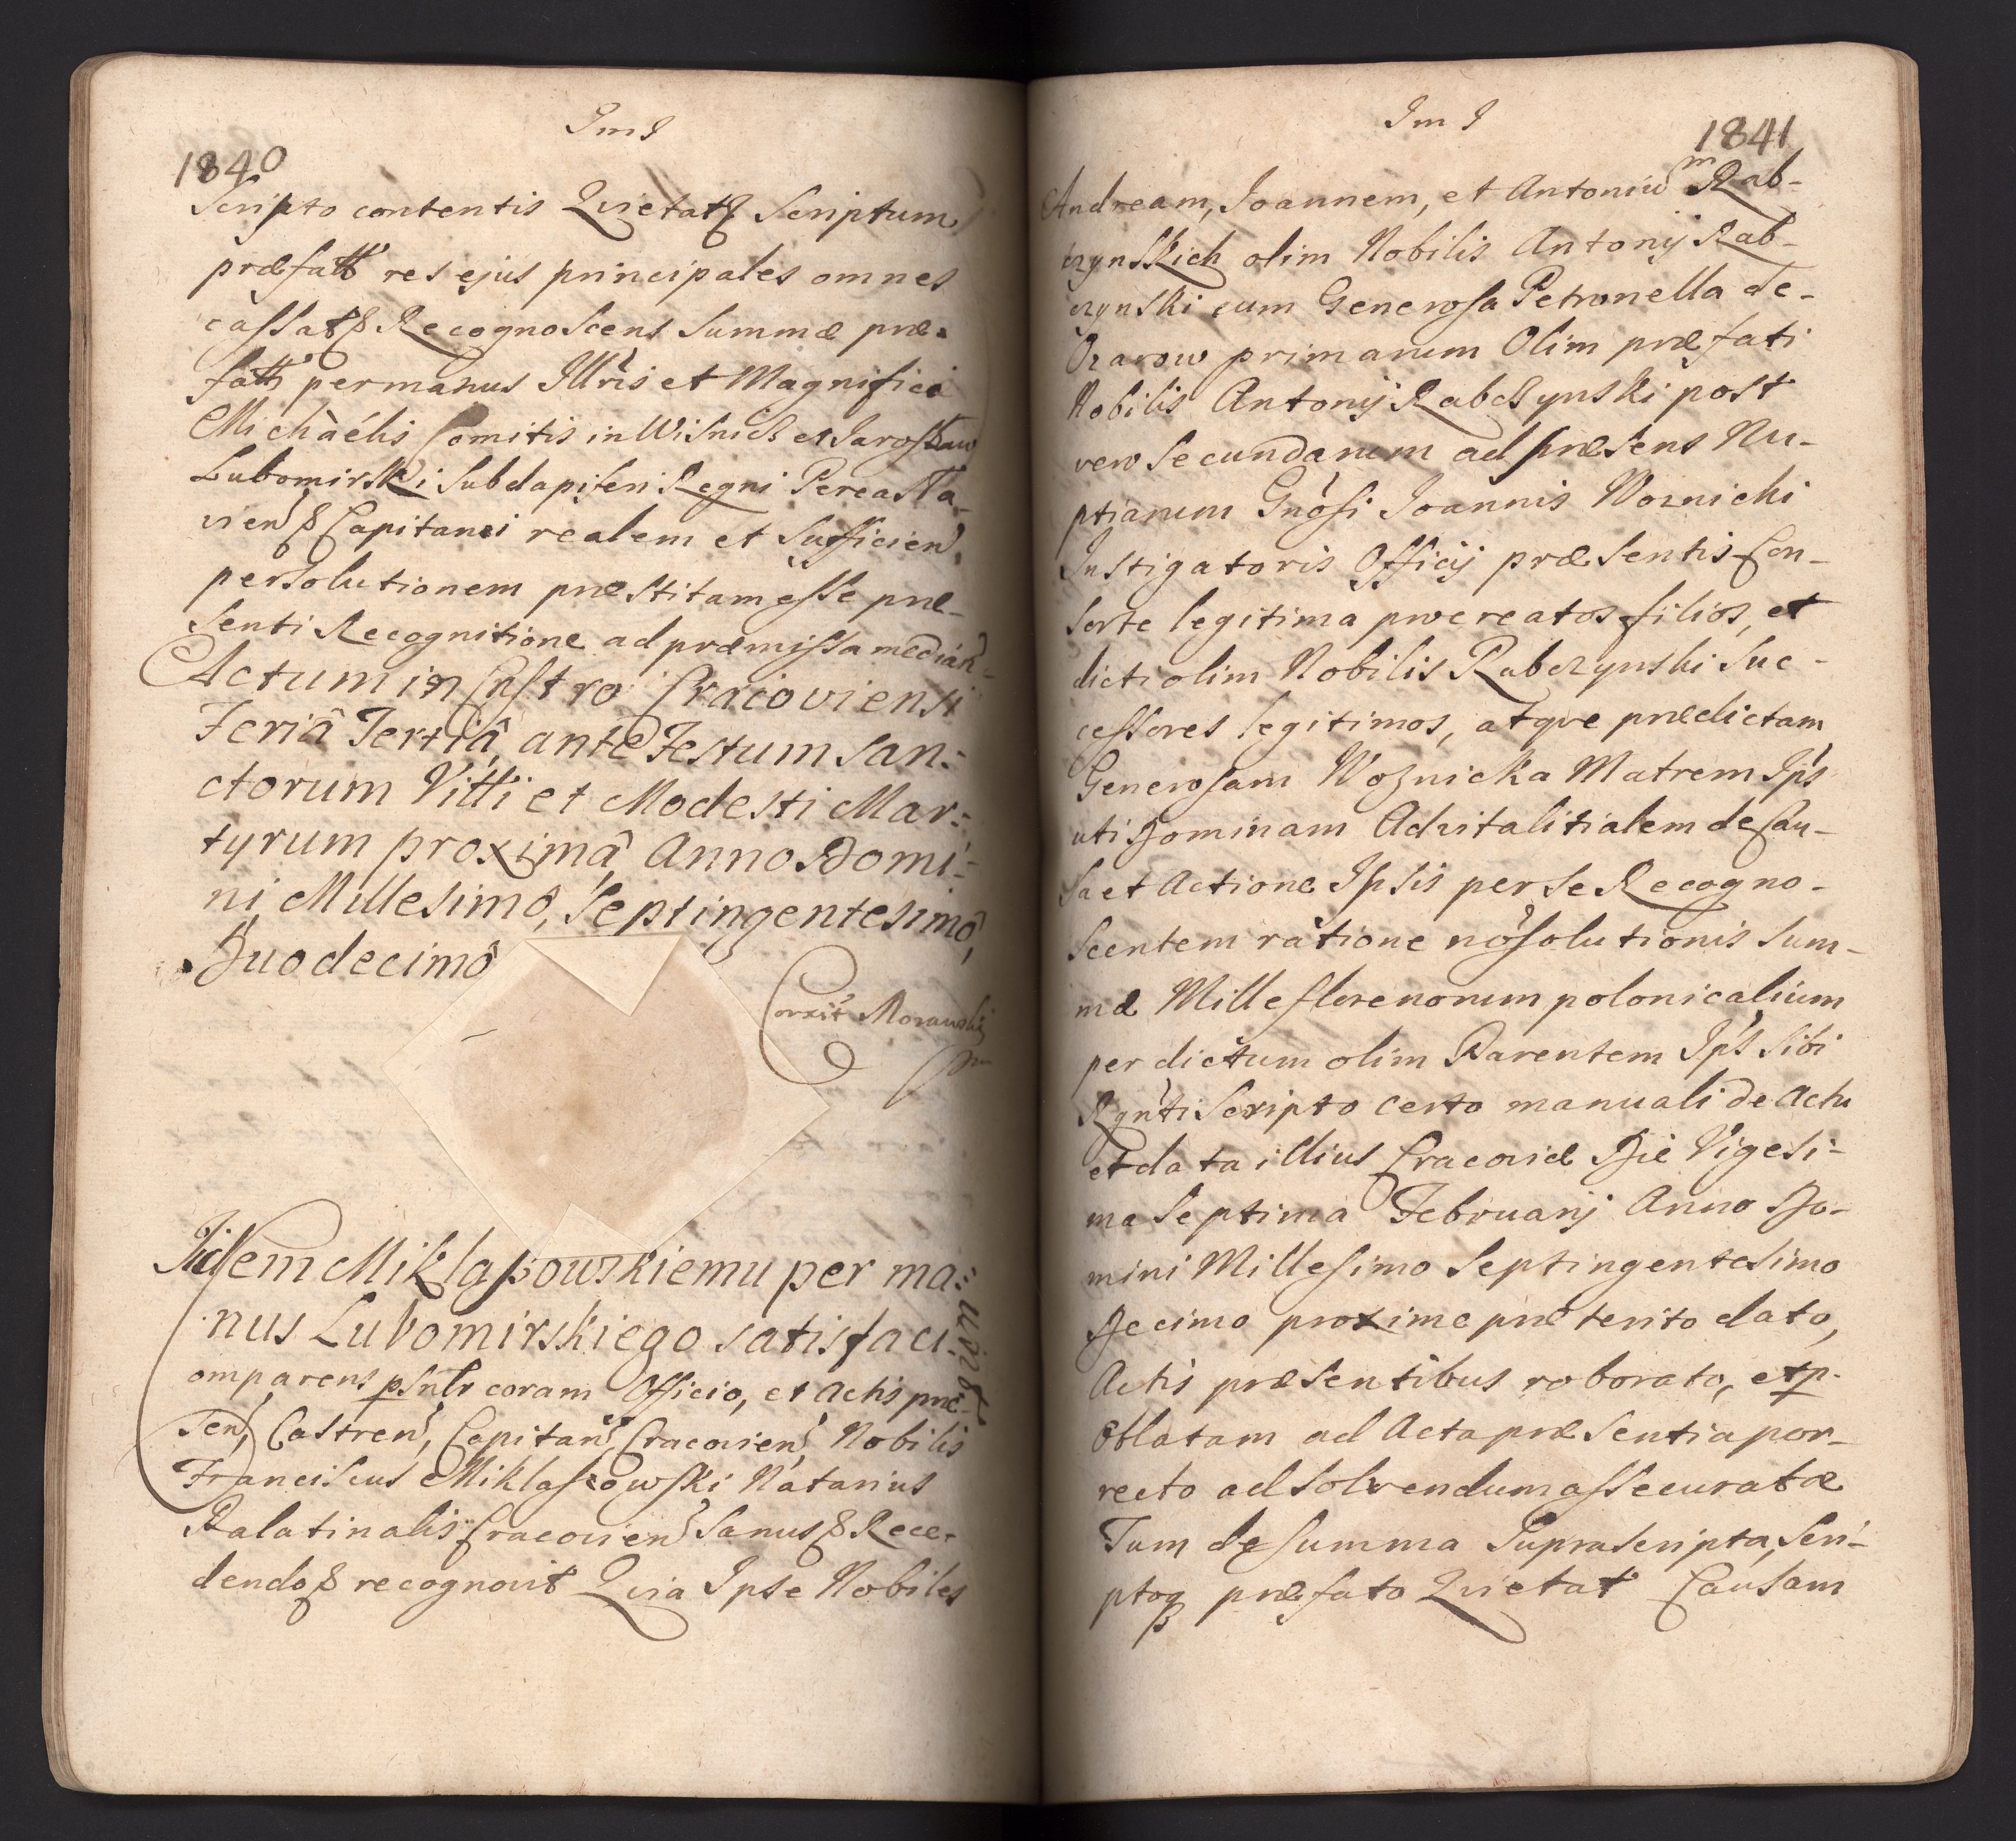 ImI
1840
Scripto contentis Quietat& Scriptum
præfatt res ejus principales omnes
cassat& Recognoscens Summæ præ-
fatt per manus Illris et Magnifici
Michäélis Comitis in Wisnicz et Jarosław
Lubomirski Subdapiferi Regni Pereasła-
vien & Capitanei realem et Sufficien,
persolutionem præstitam esse præ-
senti Recognitione ad præmissa median-
Actum in Castro Cracoviensi
Feriâ Tertiâ, ante Festum San=
ctorum Vitti et Modesti Mar=
tyrum proximâ, Anno Domi=
ni Millesimô, Septingentesimô,
Duodecimô
Corxit Morawski
mp
Idem Miklaszowskiemu per ma=
nus Lubomirskiego satisfaci-
omparens psnlr coram Officio, et Actis præ-
sen, Castren, Capitan, Cracovien, Nobilis
Franciscus Miklaszowski Notarius
Palatinalis Cracovien Sanus & Rece-
dendo & recognovit Quia Ipse Nobiles
ImI
1841
Andream, Joannem, et Antoniũ m Rab-
czynskich olim Nobilis Antonij Rab-
czynski cum Generosa Petronella de-
Ozarow primarum Olim præfati
Nobilis Antonij Rabczynski post
vero Secundarum ad præsens Nu-
ptiarum Gnosi Joannis Woznicki
Instigatoris Officij præsentis Con-
sorte legitima procreatos filios, et
dicti olim Nobilis Rabczynski Suc-
cessores legitimos, atqve prædictam
Generosam Woznicka Matrem Ips
uti Dominam Advitalitialem de Cau-
sa et Actione Ipsis per se Recogno-
scentem ratione nosolutionis Sum-
mæ Mille florenorum polonicalium
per dictum olim Parentem Ips sibi
Rgnti Scripto certo manuali de Actu
et data illius Cracoviæ Die Vigesi-
ma Septima Februarij Anno Do-
mini Millesimo Septingentesimo
Decimo proxime præterito dato,
Actis præsentibus roborato, et p.
Oblatam ad Acta præsentia por-
recto ad solvendum assecuratæ
Tum de Summa Suprascripta, Scri-
ptoq præfato Quietat Causam